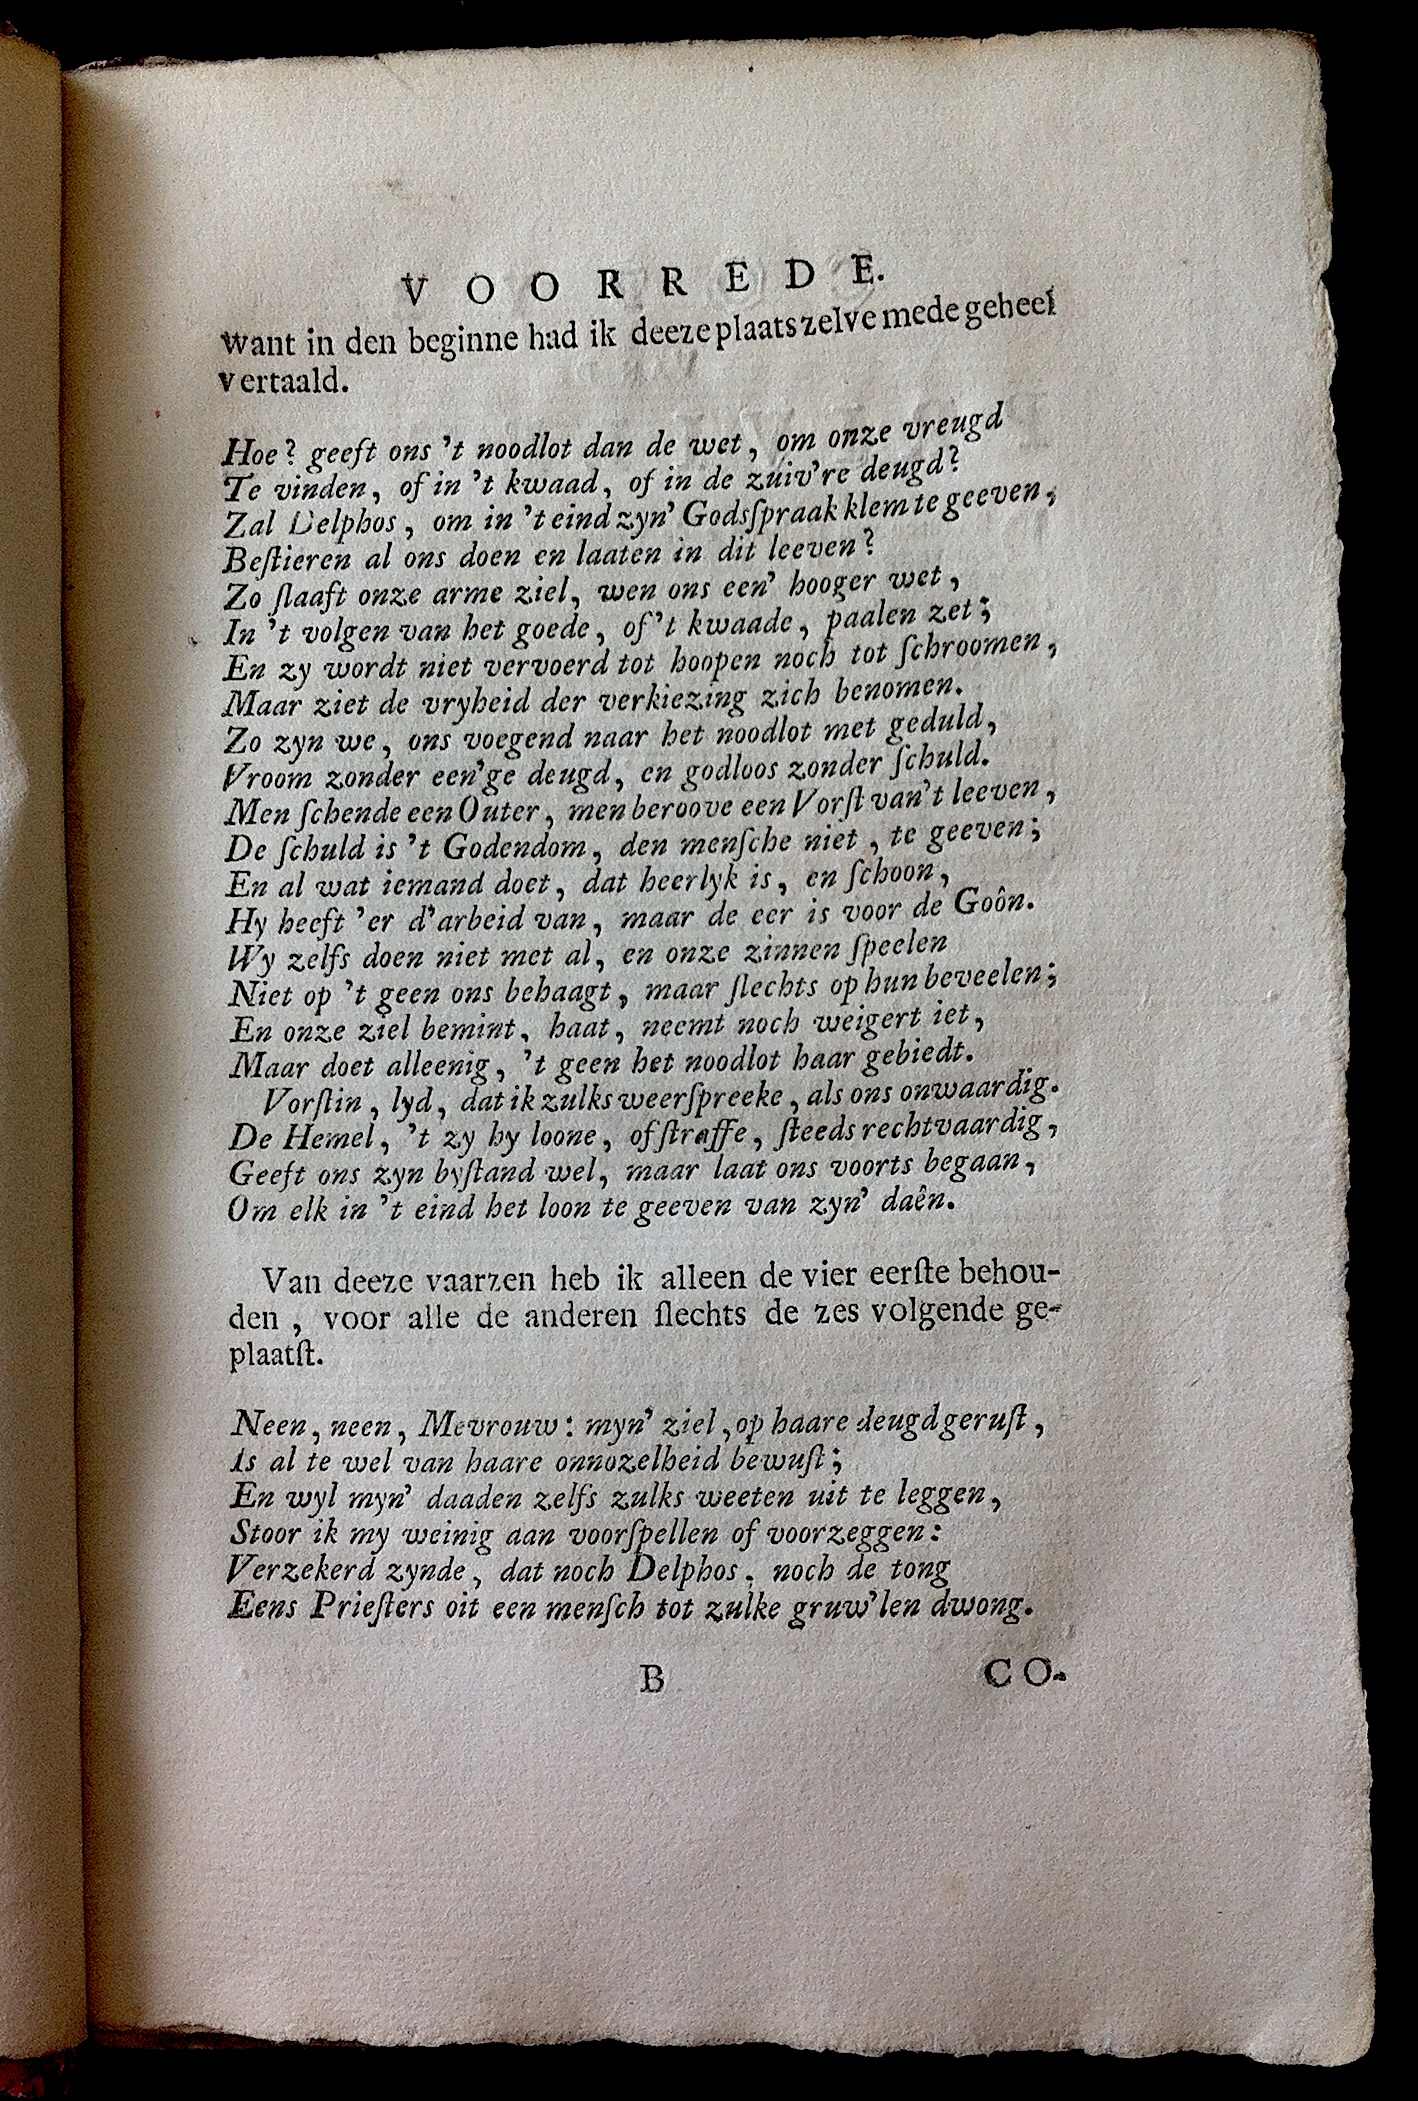 VOORREDE.
Want in den beginne had ik deeze plaats zelve mede geheel
vertaald.
Hoe? geeft ons 't noodlot dan de wet, om onze vreugd
Te vinden, of in 't kwaad, of in de zuiv're deugd?
Zal Delphos, om in 't eind zyn' Godsſpraak klem te geeven,
Beſtieren al ons doen en laaten in dit leeven?
Zo ſlaaft onze arme ziel, wen ons een' hooger wet,
In 't volgen van het goede, of 't kwaade, paalen zet;
En zy wordt niet vervoerd tot hoopen noch tot ſchroomen,
Maar ziet de vryheid der verkiezing zich benomen.
Zo zyn we, ons voegend naar het noodlot met geduld,
Vroom zonder een'ge deugd, en godloos zonder ſchuld.
Men ſchende een Outer, men beroove een Vorſt van 't leeven,
De ſchuld is 't Godendom, den menſche niet, te geeven;
En al wat iemand doet, dat heerlyk is, en ſchoon,
Hy heeft 'er d'arbeid van, maar de eer is voor de Goôn.
Wy zelfs doen niet met al, en onze zinnen ſpeelen
Niet op 't geen ons behaagt, maar ſlechts op hun beveelen;
En onze ziel bemint, haat, neemt noch weigert iet,
Maar doet alleenig, 't geen het noodlot haar gebiedt.
Vorſtin, lyd, dat ik zulks weerſpreeke, als ons onwaardig.
De Hemel, 't zy hy loone, of ſtraffe, ſteeds rechtvaardig,
Geeft ons zyn byſtand wel, maar laat ons voorts begaan,
Om elk in 't eind het loon te geeven van zyn' daên.
Van deeze vaarzen heb ik alleen de vier eerſte behou-
den, voor alle de anderen ſlechts de zes volgende ge-
plaatſt.
Neen, neen, Mevrouw: myn' ziel, op haare deugd geruſt,
Is al te wel van haare onnozelheid bewuſt;
En wyl myn' daaden zelfs zulks weeten uit te leggen,
Stoor ik my weinig aan voorſpellen of voorzeggen:
Verzekerd zynde, dat noch Delphos, noch de tong
Eens Prieſters oit een menſch tot zulke gruw'len dwong.
B CO-